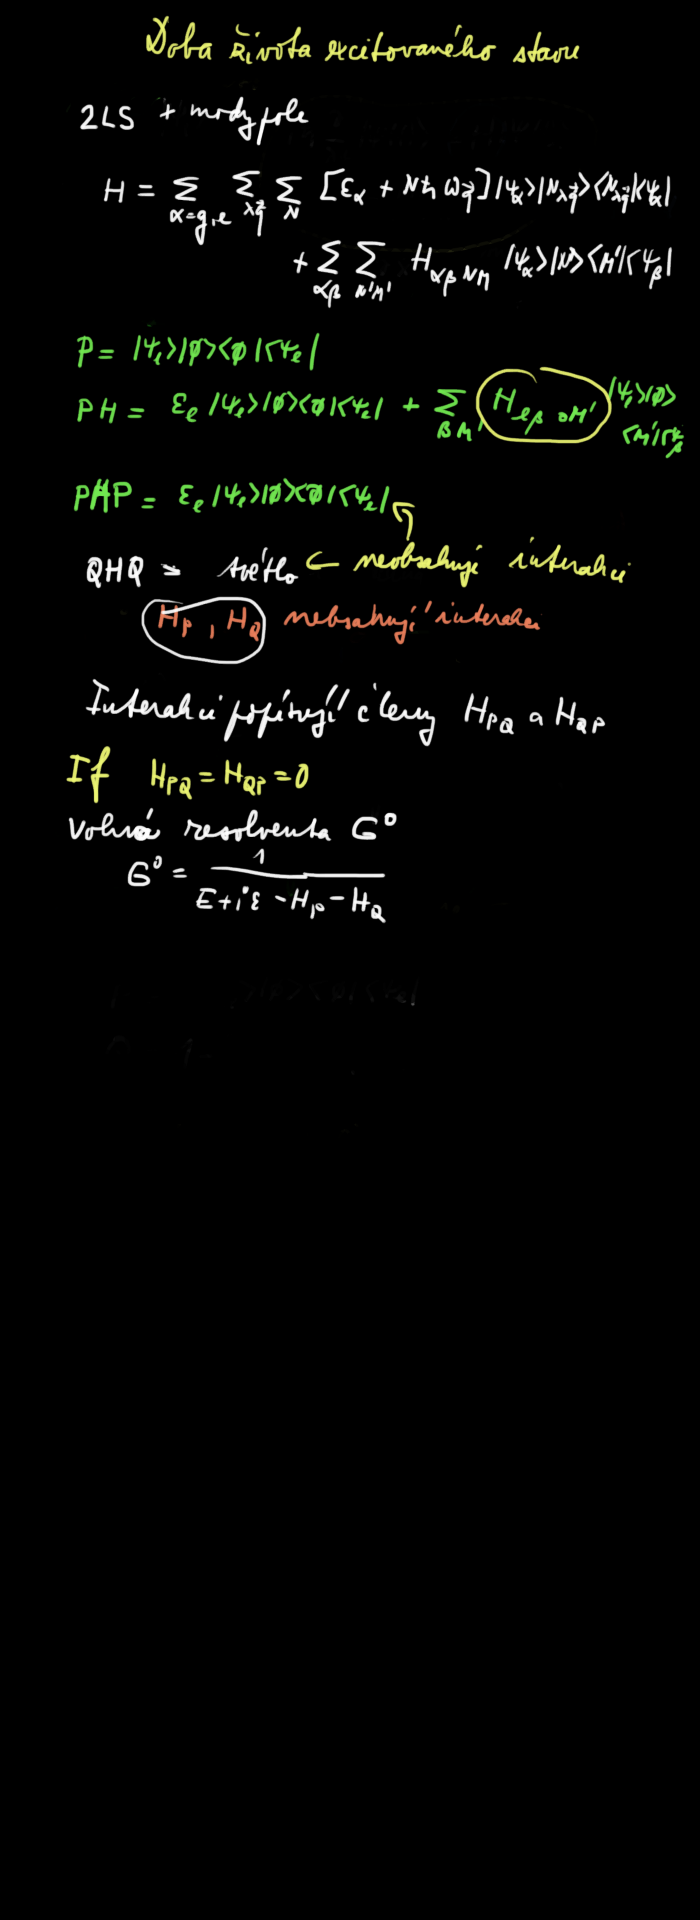 Doba života excitovaného stavu
2LS + mody pole
H = Σ_{α=g,e} Σ_{λq⃗} Σ_N [ε_α + Nħω_q⃗] |ψ_α>|N_{λq⃗}><N_{λq⃗}|<ψ_α|
+ Σ_{αβ} Σ_{N'M'} H_{αβ NM} |ψ_α>|N><M'|<ψ_β|
P = |ψ_e>|∅><∅|<ψ_e|
PH = ε_e |ψ_e>|∅><∅|<ψ_e| + Σ_{βM'} H_{eβ 0M'} |ψ_e>|∅>
<M'|<ψ_β|
PHP = ε_e |ψ_e>|∅><∅|<ψ_e|
QHQ = světlo neobsahují interakci
H_P, H_Q neobsahují interakci
Interakci popisují členy H_{PQ} a H_{QP}
If H_{PQ} = H_{QP} = 0
Volná resolventa G⁰
G⁰ = 1
E + iε - H_P - H_Q